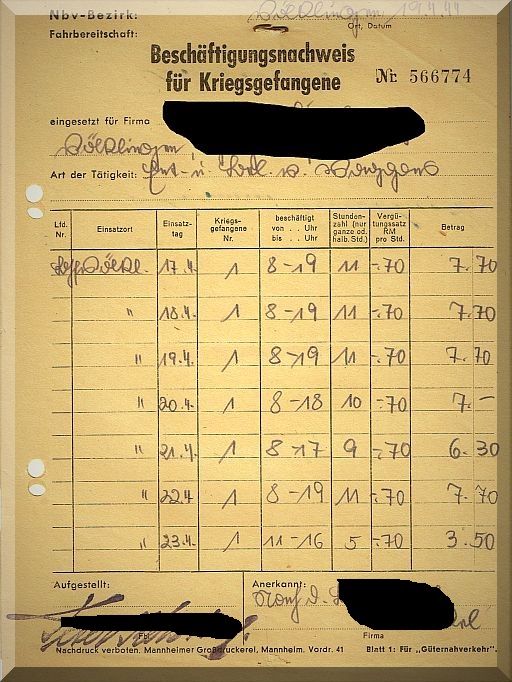 Nbv-Bezirk: Völklingen 19.4.44
Fahrbereitschaft: Ort, Datum
Beschäftigungsnachweis
für Kriegsgefangene
Nr. 566774
eingesetzt für Firma
Völklingen
Art der Tätigkeit: Ent- u. Bel. v. Waggons
Lfd. Nr. Einsatzort Einsatz-tag Kriegs-gefangene Nr. beschäftigt von . . Uhr bis . . Uhr Stunden-zahl (nur ganze od. halb. Std.) Vergü-tungssatz RM pro Std. Betrag
17.4. 1 8-19 11 -.70 7.70
" 18.4. 1 8-19 11 -.70 7.70
" 19.4. 1 8-19 11 -.70 7.70
" 20.4. 1 8-18 10 -.70 7.-
" 21.4. 1 8-17 9 -.70 6.30
" 22.4 1 8-19 11 -.70 7.70
" 23.4. 1 11-16 5 -.70 3.50
Aufgestellt: Anerkannt:
Firma
Nachdruck verboten. Mannheimer Großdruckerei, Mannheim. Vordr. 41 Blatt 1: Für „Güternahverkehr".